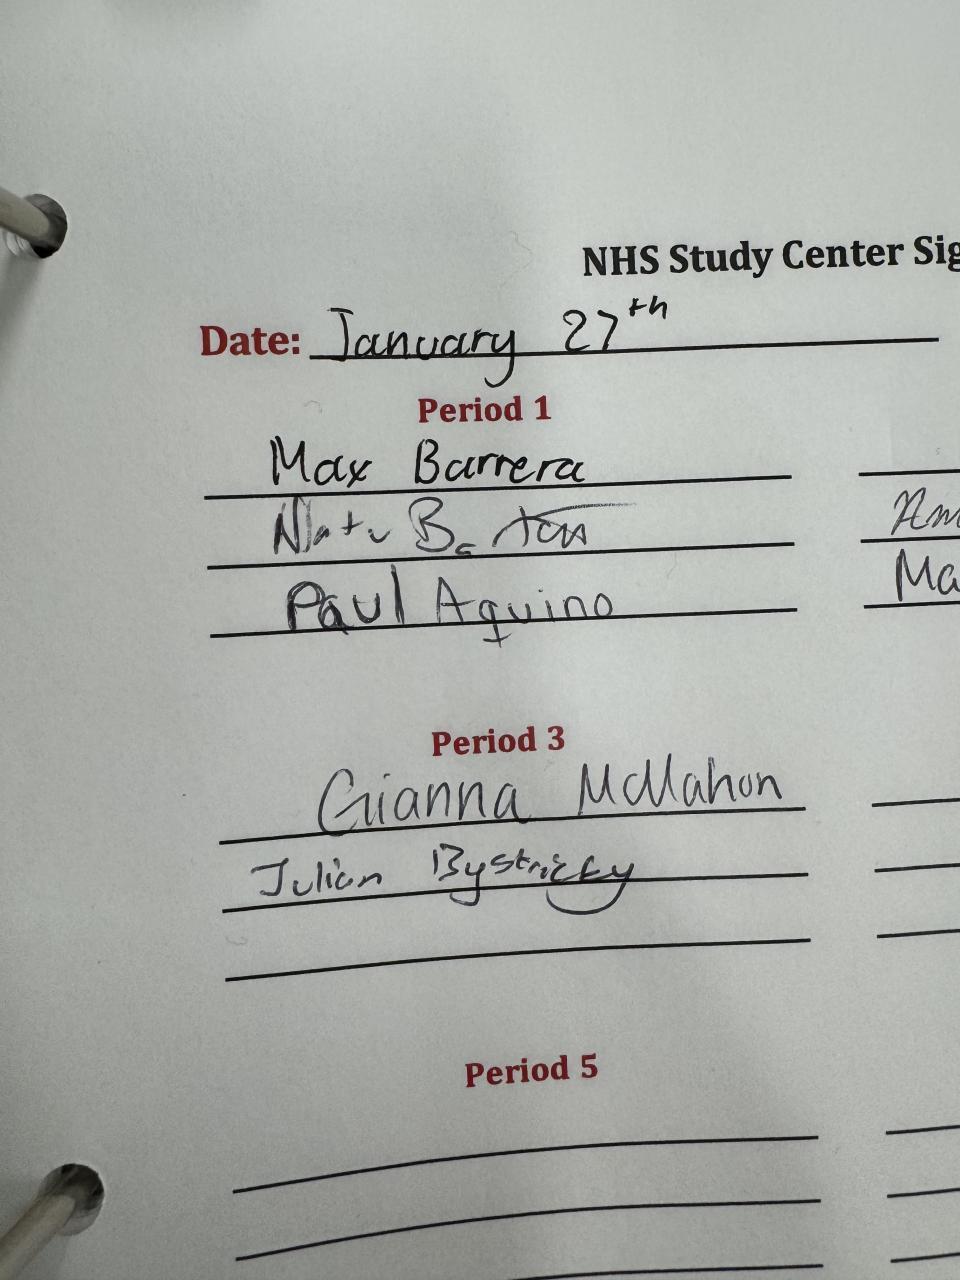 NHS Study Center Sig
Date: January 27th
Period 1
Max Barrera
Paul Aquino
Ma
Period 3
Gianna McMahon
Julian Bystricky
Period 5